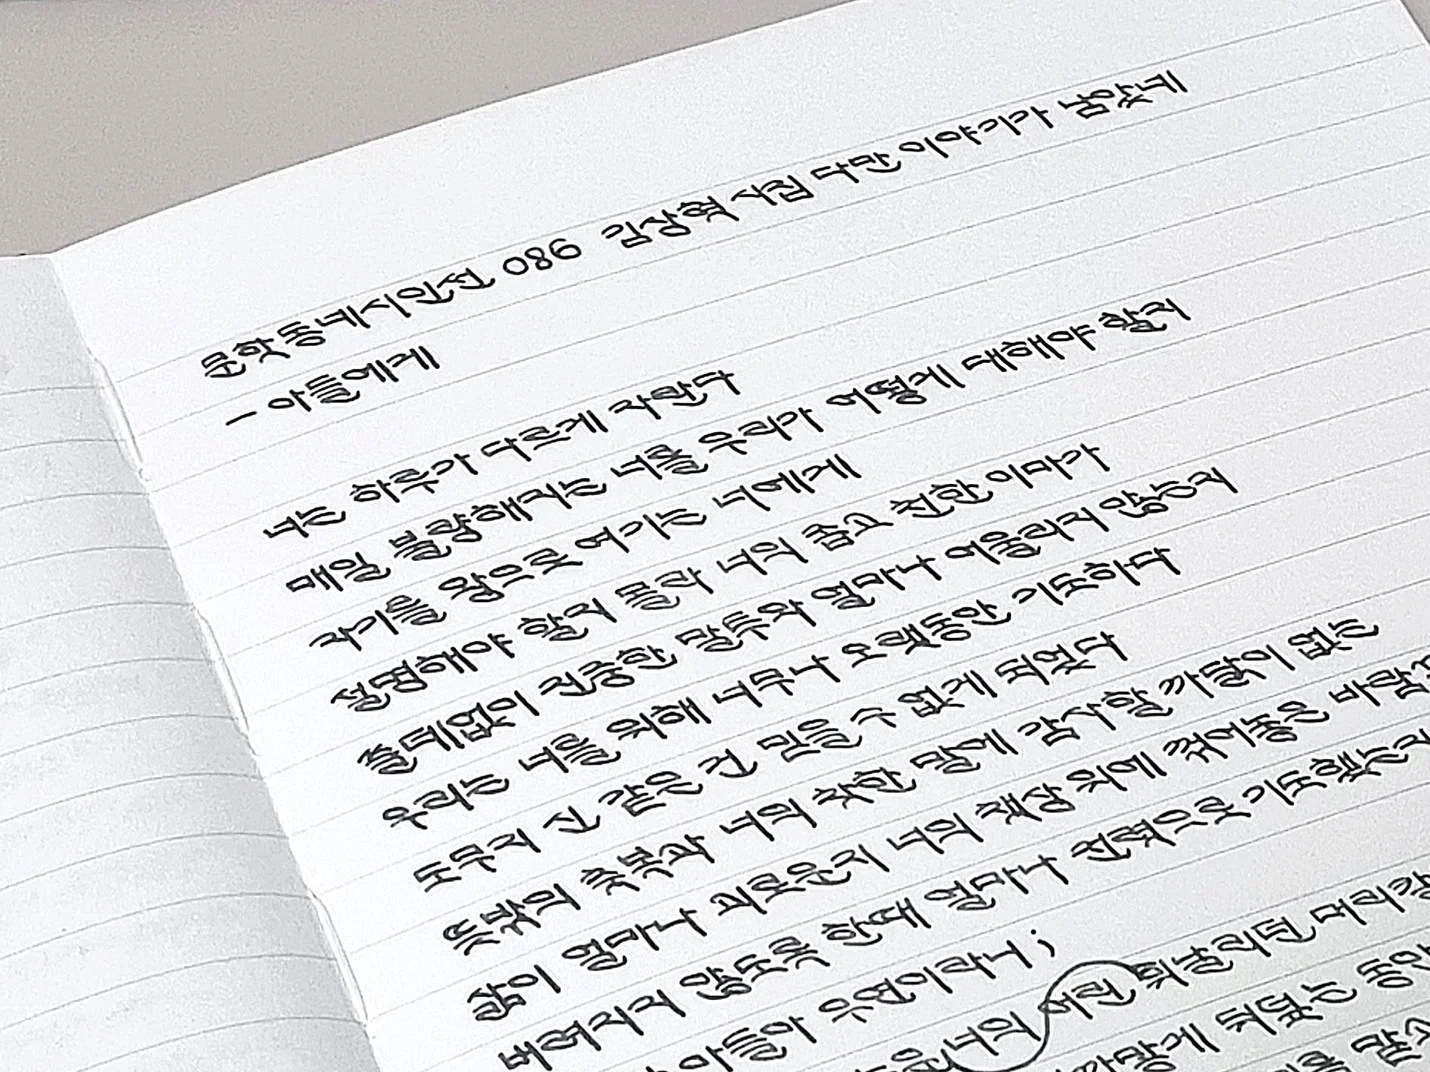 문학동네시인선 086 김상혁 시집 다만 이야기가 남았네
- 아들에게
너는 하루가 다르게 자란다
매일 불량해지는 너를 우리가 어떻게 대해야 할지
자기를 왕으로 여기는 너에게
설명해야 할지 몰라 너의 좁고 천한 이마가
쓸데없이 진중한 말투와 얼마나 어울리지 않는지
우리는 너를 위해 너무나 오랫동안 기도하다
도무지 신 같은 건 믿을 수 없게 되었다
뜻밖의 축복과 너의 착한 맘에 감사할 까닭이 없는
삶이 얼마나 괴로운지 너의 책상 위에 찢어놓은
버려지지 않도록 한때 얼마나 전력으로 기도했는지
아들아 우연이라니;
너의 여린 휘날리던 머리칼
까맣게 뒤덮는 동안